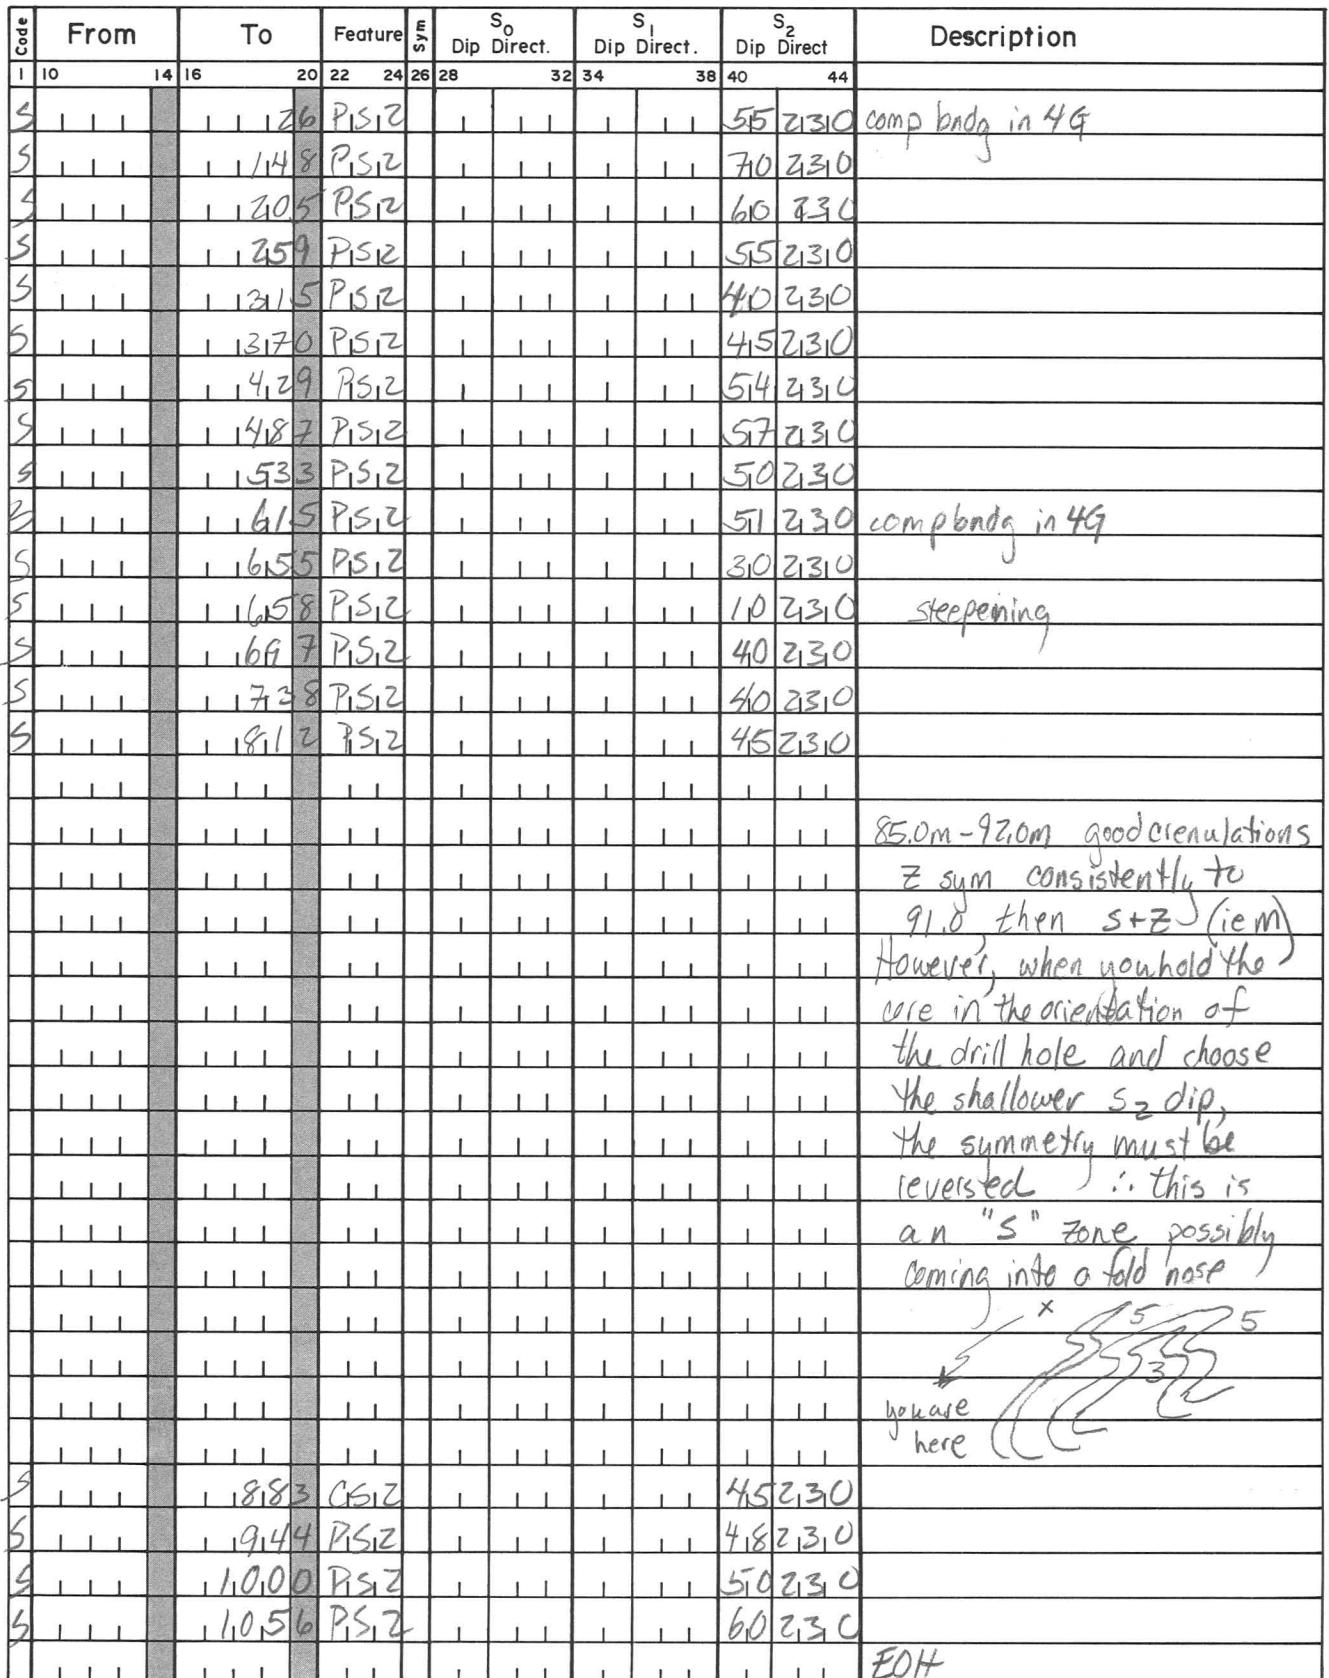 Code From To Feature Sym S0 Dip Direct. S1 Dip Direct. S2 Dip Direct Description
1 10 14 16 20 22 24 26 28 32 34 38 40 44
S 26 PS2 55 230 comp bndg in 4G
S 148 PS2 70 230
S 205 PS2 60 230
S 259 PS2 55 230
S 315 PS2 40 230
S 370 PS2 45 230
S 429 PS2 54 230
S 487 PS2 57 230
S 533 PS2 50 230
S 615 PS2 51 230 comp bndg in 4G
S 655 PS2 30 230
S 658 PS2 10 230 steepening
S 697 PS2 40 230
S 738 PS2 40 230
S 812 PS2 45 230
85.0m - 92.0m good crenulations
Z sym consistently to
91.0, then S+Z (ie M)
However, when you hold the
core in the orientation of
the drill hole and choose
the shallower S2 dip,
the symmetry must be
reversed ∴ this is
an "S" zone possibly
coming into a fold nose
x 5 5
3
you are
here
S 883 CS2 45 230
S 944 PS2 48 230
S 1000 PS2 50 230
S 1056 PS2 60 230
EOH